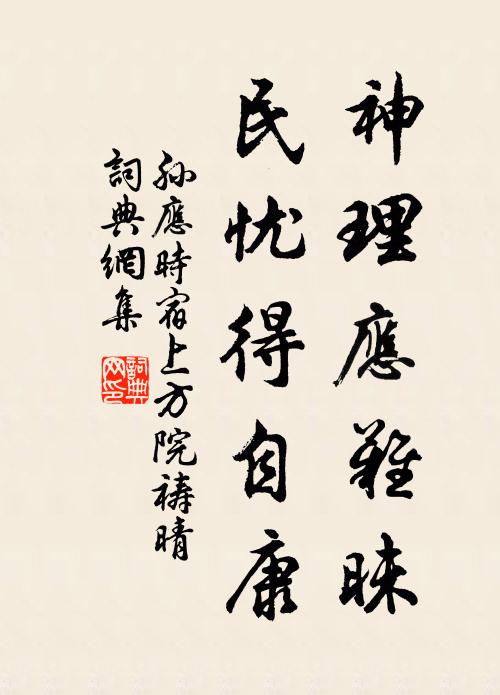 神理應難昧
民忧得自康
孙應時宿上方院祷晴
詞典網集
詞典网印